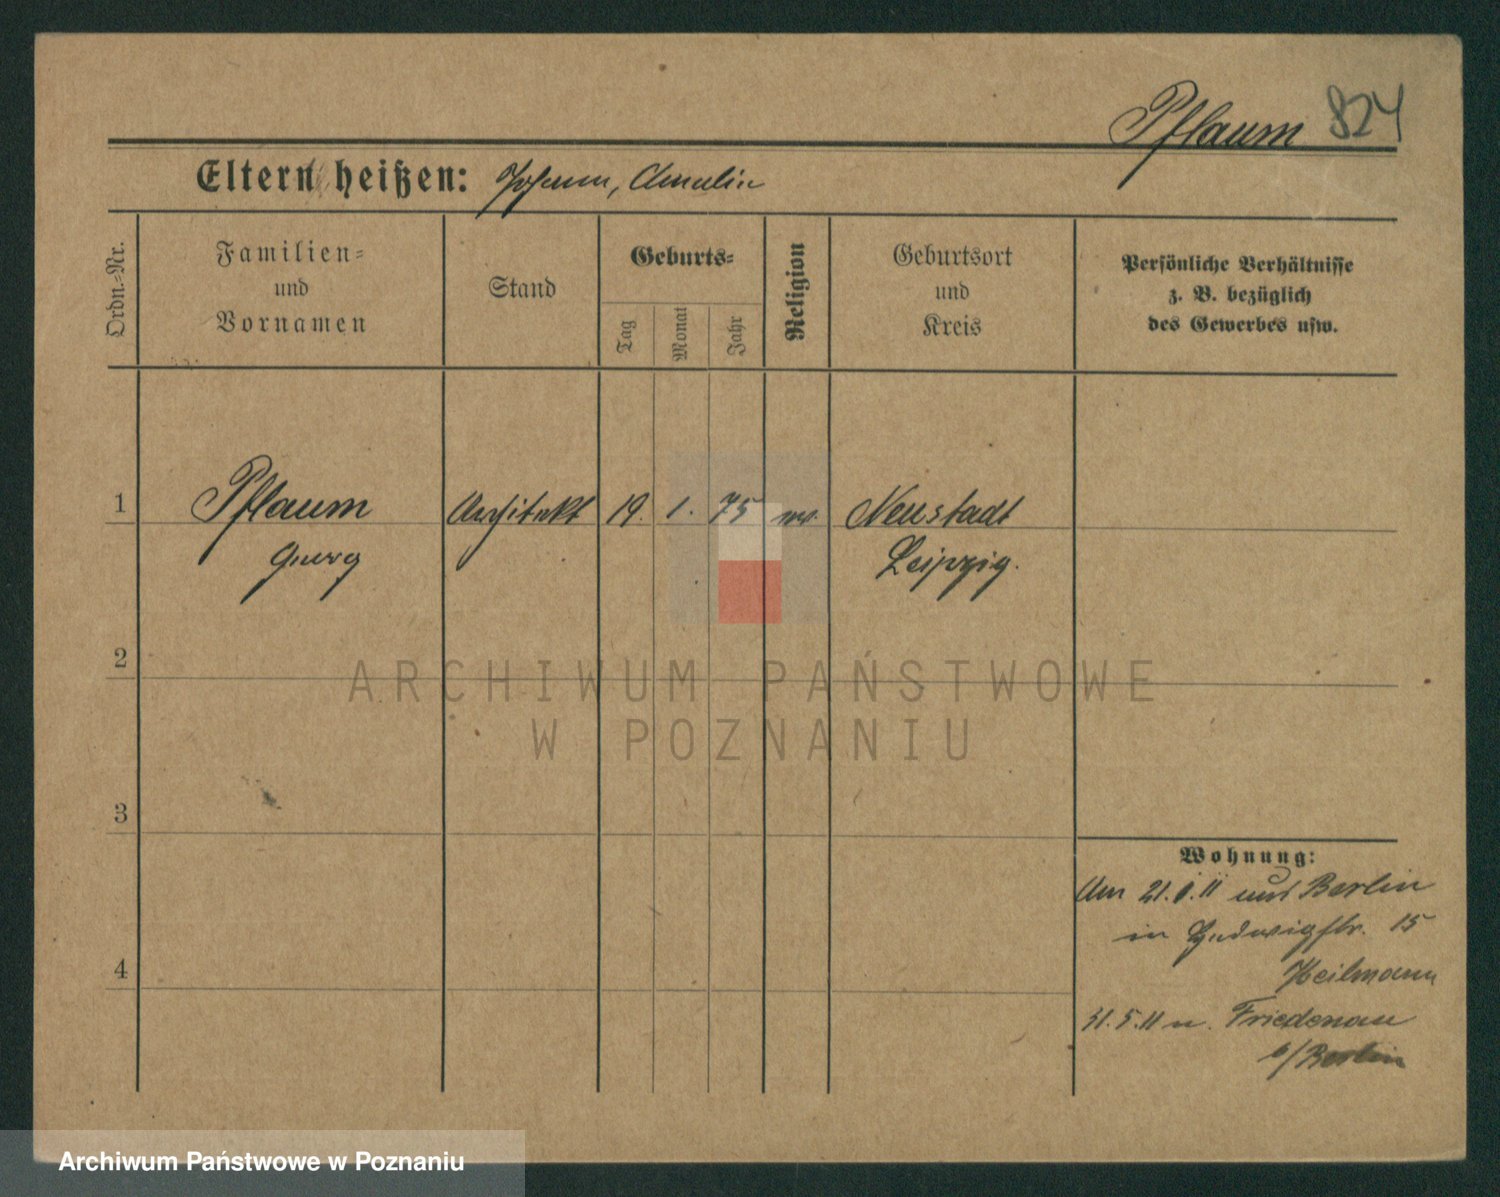 Pflaum 824
Eltern heißen: Johann, Amalie
Ordn.-Nr.
Familien-
und
Vornamen
Stand
Geburts-
Tag
Monat
Jahr
Religion
Geburtsort
und
Kreis
Persönliche Verhältnisse
z. B. bezüglich
des Gewerbes usw.
1 Pflaum Architekt 19. 1. 75 Neustadt
Georg Leipzig.
2
3
4
Wohnung:
Am 21. 1. 11 aus Berlin
in Hedwigstr. 15
Heilmann
31.5.11 n. Friedenau
b/Berlin
ARCHIWUM PAŃSTWOWE
W POZNANIU
Archiwum Państwowe w Poznaniu